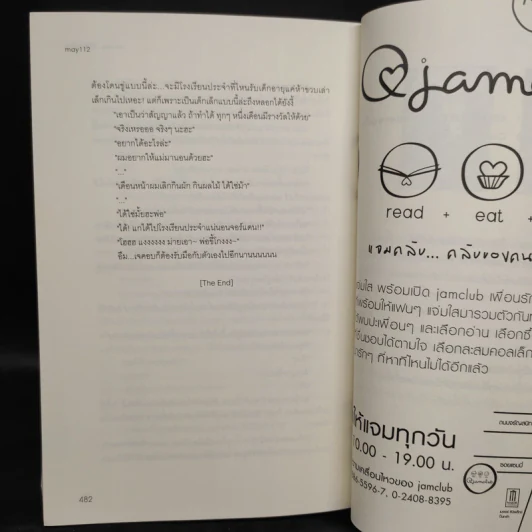 may112
ต้องโดนขู่แบบนี้ล่ะ...จะมีโรงเรียนประจำที่ไหนรับเด็กอายุแค่ห้าขวบเล่า
เล็กเกินไปเหอะ! แต่ก็เพราะเป็นเด็กเล็กแบบนี้ล่ะถึงหลอกได้ยังงี้
"เอาเป็นว่าสัญญาแล้ว ถ้าทำได้ ทุกๆ หนึ่งเดือนมีรางวัลให้ด้วย"
"จริงเหรอออ จริงๆ นะฮะ"
"อยากได้อะไรล่ะ"
"ผมอยากให้แม่มานอนด้วยฮะ"
"..."
"เดือนหน้าผมเลิกกินผัก กินผลไม้ ได้ใช่ม้า"
"..."
"ได้ใช่มั้ยฮะพ่อ"
"ได้! แกได้ไปโรงเรียนประจำแน่นอนจอร์แดน!"
"โฮฮฮ แงงงงงง ม่ายเอา~ พ่อขี้โกงงง~"
อืม...เจคอบก็ต้องรับมือกับตัวเองไปอีกนานนนนนน
[The End]
482
jam
read + eat +
แจมคลับ... คลับของคน
ใส พร้อมเปิด jamclub เพื่อนรัก
พร้อมให้แฟนๆ แจ่มใสมารวมตัวกัน
พบปะเพื่อนๆ และเลือกอ่าน เลือกซื้
ชอบได้ตามใจ เลือกสะสมคอลเล็ก
รักๆ ที่หาที่ไหนไม่ได้อีกแล้ว
ให้แจมทุกวัน
10.00 - 19.00 น.
ความเคลื่อนไหวของ jamclub
6-5596-7, 0-2408-8395
ถนนจรัญสนิท
jamclub